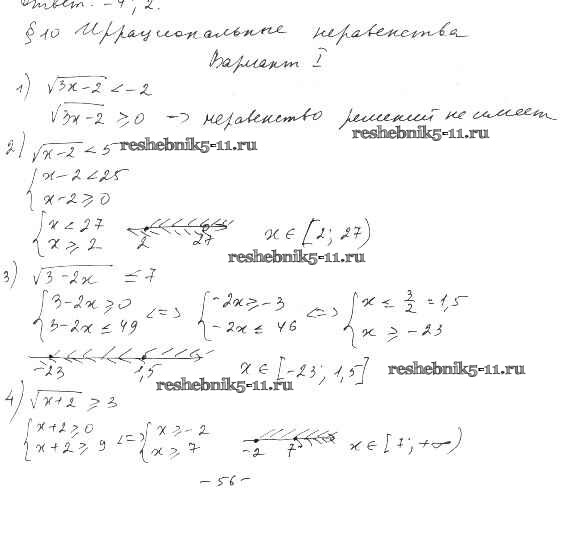 Ответ: -4; 2.
§10 Иррациональные неравенства
Вариант I
1) √3x-2 < -2
√3x-2 ≥ 0 → неравенство решений не имеет
reshebnik5-11.ru
2) √x-2 < 5 reshebnik5-11.ru
{ x-2 < 25
x-2 ≥ 0
{ x < 27
x ≥ 2
2 27 x ∈ [2; 27)
reshebnik5-11.ru
3) √3-2x ≤ 7
{ 3-2x ≥ 0 <=> { -2x ≥ -3 <=> { x ≤ 3/2 = 1,5
3-2x ≤ 49 -2x ≤ 46 x ≥ -23
-23 1,5 x ∈ [-23; 1,5] reshebnik5-11.ru
reshebnik5-11.ru
4) √x+2 ≥ 3
{ x+2 ≥ 0 <=> { x ≥ -2
x+2 ≥ 9 x ≥ 7
-2 7 x ∈ [7; +∞)
-56-